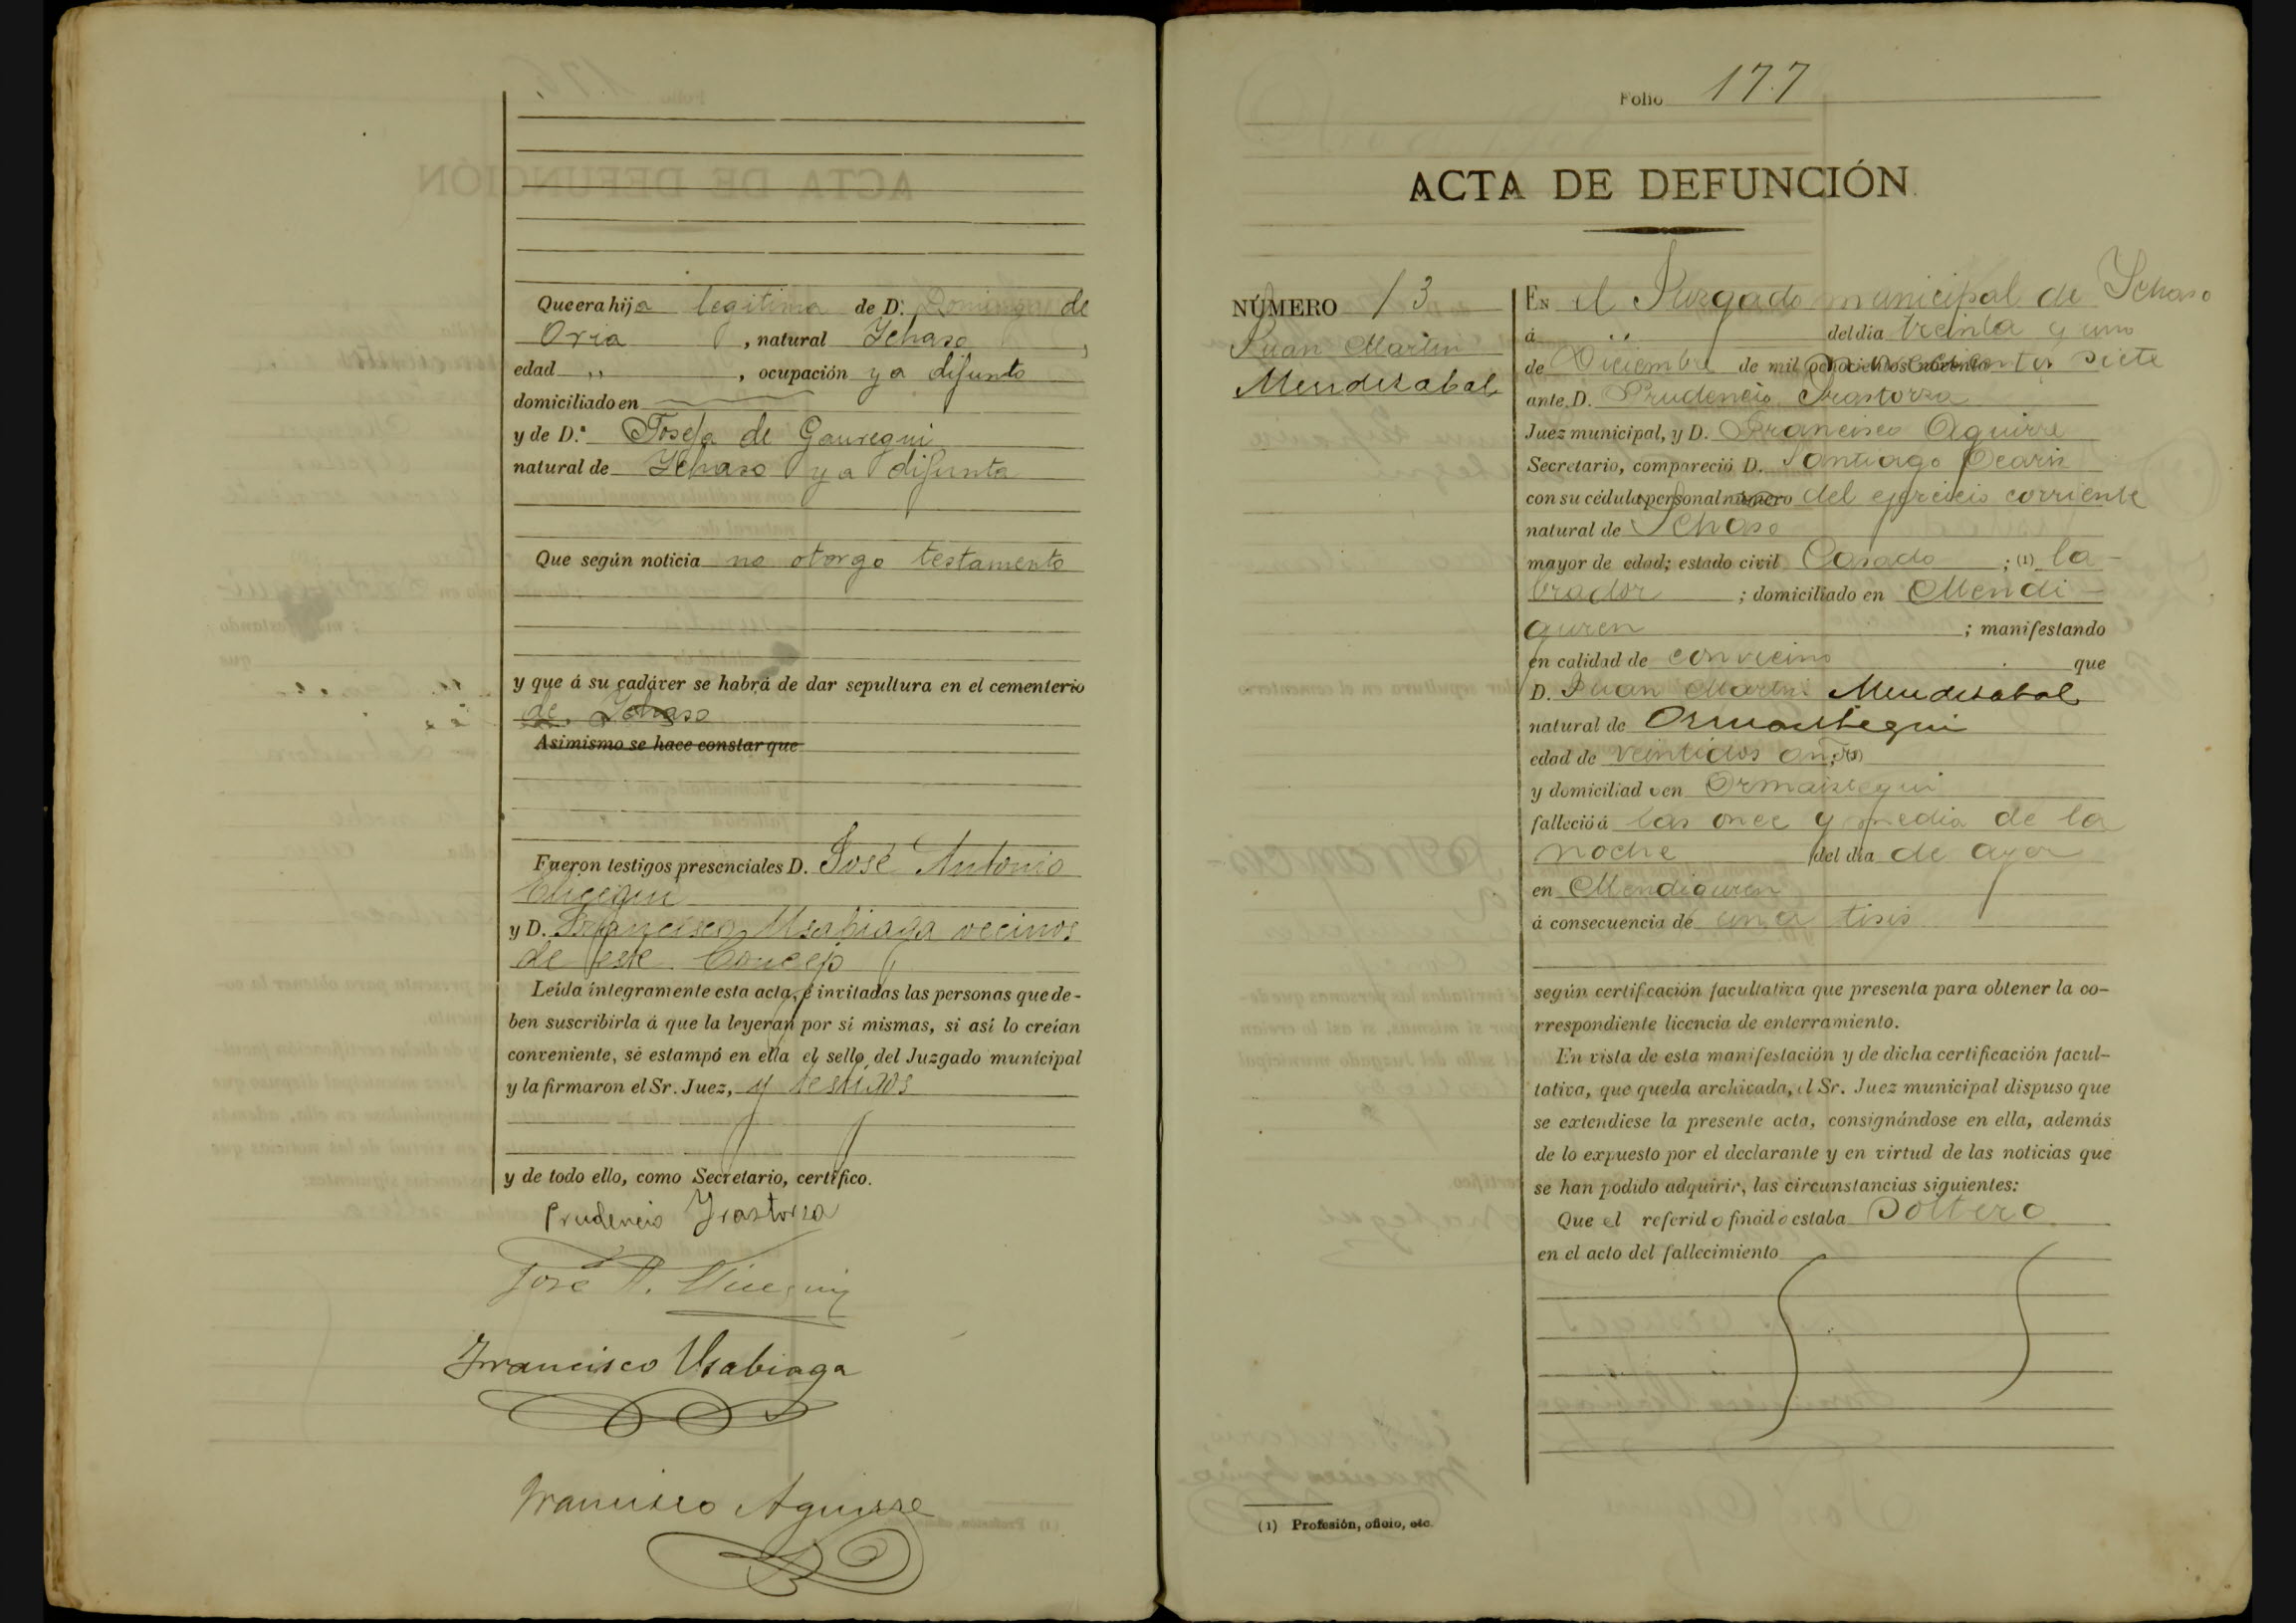 Que era hija legitima de D. Domingo de
Oria, natural Ychaso,
edad ,, , ocupación ya difunto
domiciliado en
y de D.ª Josefa de Gauregui
natural de Ychaso ya difunta
Que según noticia no otorgo testamento
y que á su cadáver se habrá de dar sepultura en el cementerio
de Ychaso
Asimismo se hace constar que
Fueron testigos presenciales D. José Antonio
y D. Francisco Usabiaga vecinos
de este Concejo
Leída íntegramente esta acta, é invitadas las personas que de-
ben suscribirla á que la leyeran por sí mismas, si así lo creían
conveniente, se estampó en ella el sello del Juzgado municipal
y la firmaron el Sr. Juez, y testigos
y de todo ello, como Secretario, certifico.
Prudencio Yrastorza
José A.
Francisco Usabiaga
Francisco Aguirre
Folio 177
ACTA DE DEFUNCIÓN.
NÚMERO 13
Juan Martin
Mendizabal
En el Juzgado municipal de Ychaso
á ,, del dia treinta y uno
de Diciembre de mil ochocientos noventa siete
ante D. Prudencio Yrastorza
Juez municipal, y D. Francisco Aguirre
Secretario, compareció D. Santiago Ocariz
con su cédula personal número del ejercicio corriente
natural de Ychaso
mayor de edad; estado civil Casado ; (1) la-
brador ; domiciliado en Mendi-
guren ; manifestando
en calidad de convecino que
D. Juan Martin Mendizabal
natural de Ormaiztegui
edad de veintidos años
y domiciliado en Ormaiztegui
falleció á las once y media de la
noche del dia de ayer
en Mendiguren
á consecuencia de una tisis
según certificación facultativa que presenta para obtener la co-
rrespondiente licencia de enterramiento.
En vista de esta manifestación y de dicha certificación facul-
tativa, que queda archivada, el Sr. Juez municipal dispuso que
se extendiese la presente acta, consignándose en ella, además
de lo expuesto por el declarante y en virtud de las noticias que
se han podido adquirir, las circunstancias siguientes:
Que el referido finado estaba Soltero
en el acto del fallecimiento
(1) Profesión, oficio, etc.